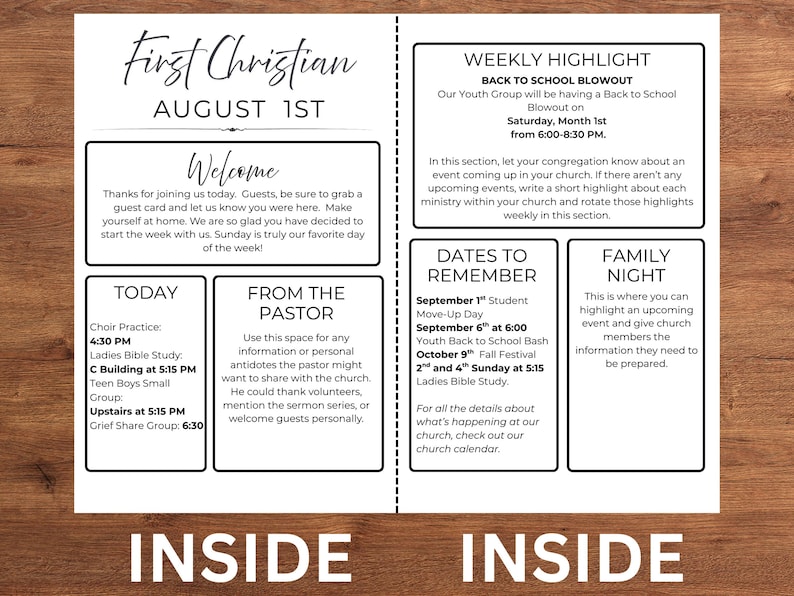 First Christian
AUGUST 1ST
Welcome
Thanks for joining us today. Guests, be sure to grab a
guest card and let us know you were here. Make
yourself at home. We are so glad you have decided to
start the week with us. Sunday is truly our favorite day
of the week!
TODAY
Choir Practice:
4:30 PM
Ladies Bible Study:
C Building at 5:15 PM
Teen Boys Small
Group:
Upstairs at 5:15 PM
Grief Share Group: 6:30
FROM THE
PASTOR
Use this space for any
information or personal
antidotes the pastor might
want to share with the church.
He could thank volunteers,
mention the sermon series, or
welcome guests personally.
WEEKLY HIGHLIGHT
BACK TO SCHOOL BLOWOUT
Our Youth Group will be having a Back to School
Blowout on
Saturday, Month 1st
from 6:00-8:30 PM.
In this section, let your congregation know about an
event coming up in your church. If there aren't any
upcoming events, write a short highlight about each
ministry within your church and rotate those highlights
weekly in this section.
DATES TO
REMEMBER
September 1st Student
Move-Up Day
September 6th at 6:00
Youth Back to School Bash
October 9th Fall Festival
2nd and 4th Sunday at 5:15
Ladies Bible Study.
For all the details about
what's happening at our
church, check out our
church calendar.
FAMILY
NIGHT
This is where you can
highlight an upcoming
event and give church
members the
information they need to
be prepared.
INSIDE
INSIDE